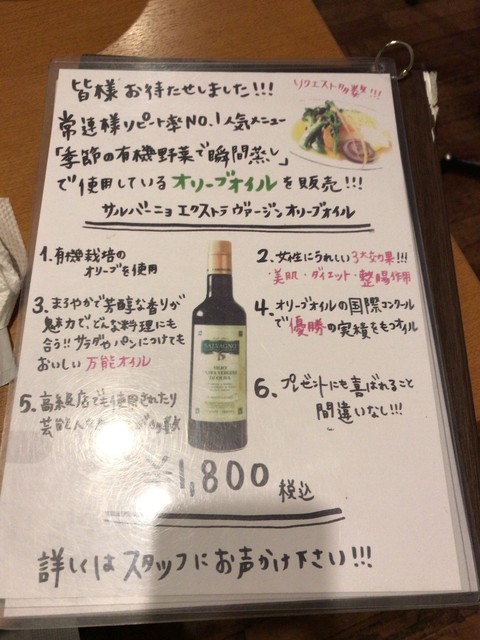 皆様 お待たせしました!!!
リクエスト多数!!!
常連様リピート率NO.1人気メニュー
「季節の有機野菜で瞬間蒸し」
で使用しているオリーブオイルを販売!!!
サルバーニョ エクストラ ヴァージン オリーブオイル
1.有機栽培の
オリーブを使用
2.女性にうれしい3大効果!!!
・美肌・ダイエット・整腸作用
3.まろやかで芳醇な香りが
魅力で、どんな料理にも
合う!!サラダやパンにつけても
おいしい 万能オイル
4.オリーブオイルの国際コンクール
で優勝の実績をもつオイル
5.高級店でも使用されたり
芸能人
6.プレゼントにも喜ばれること
間違いなし!!!
SALVAGNO
¥1,800 税込
詳しくはスタッフにお声かけ下さい!!!